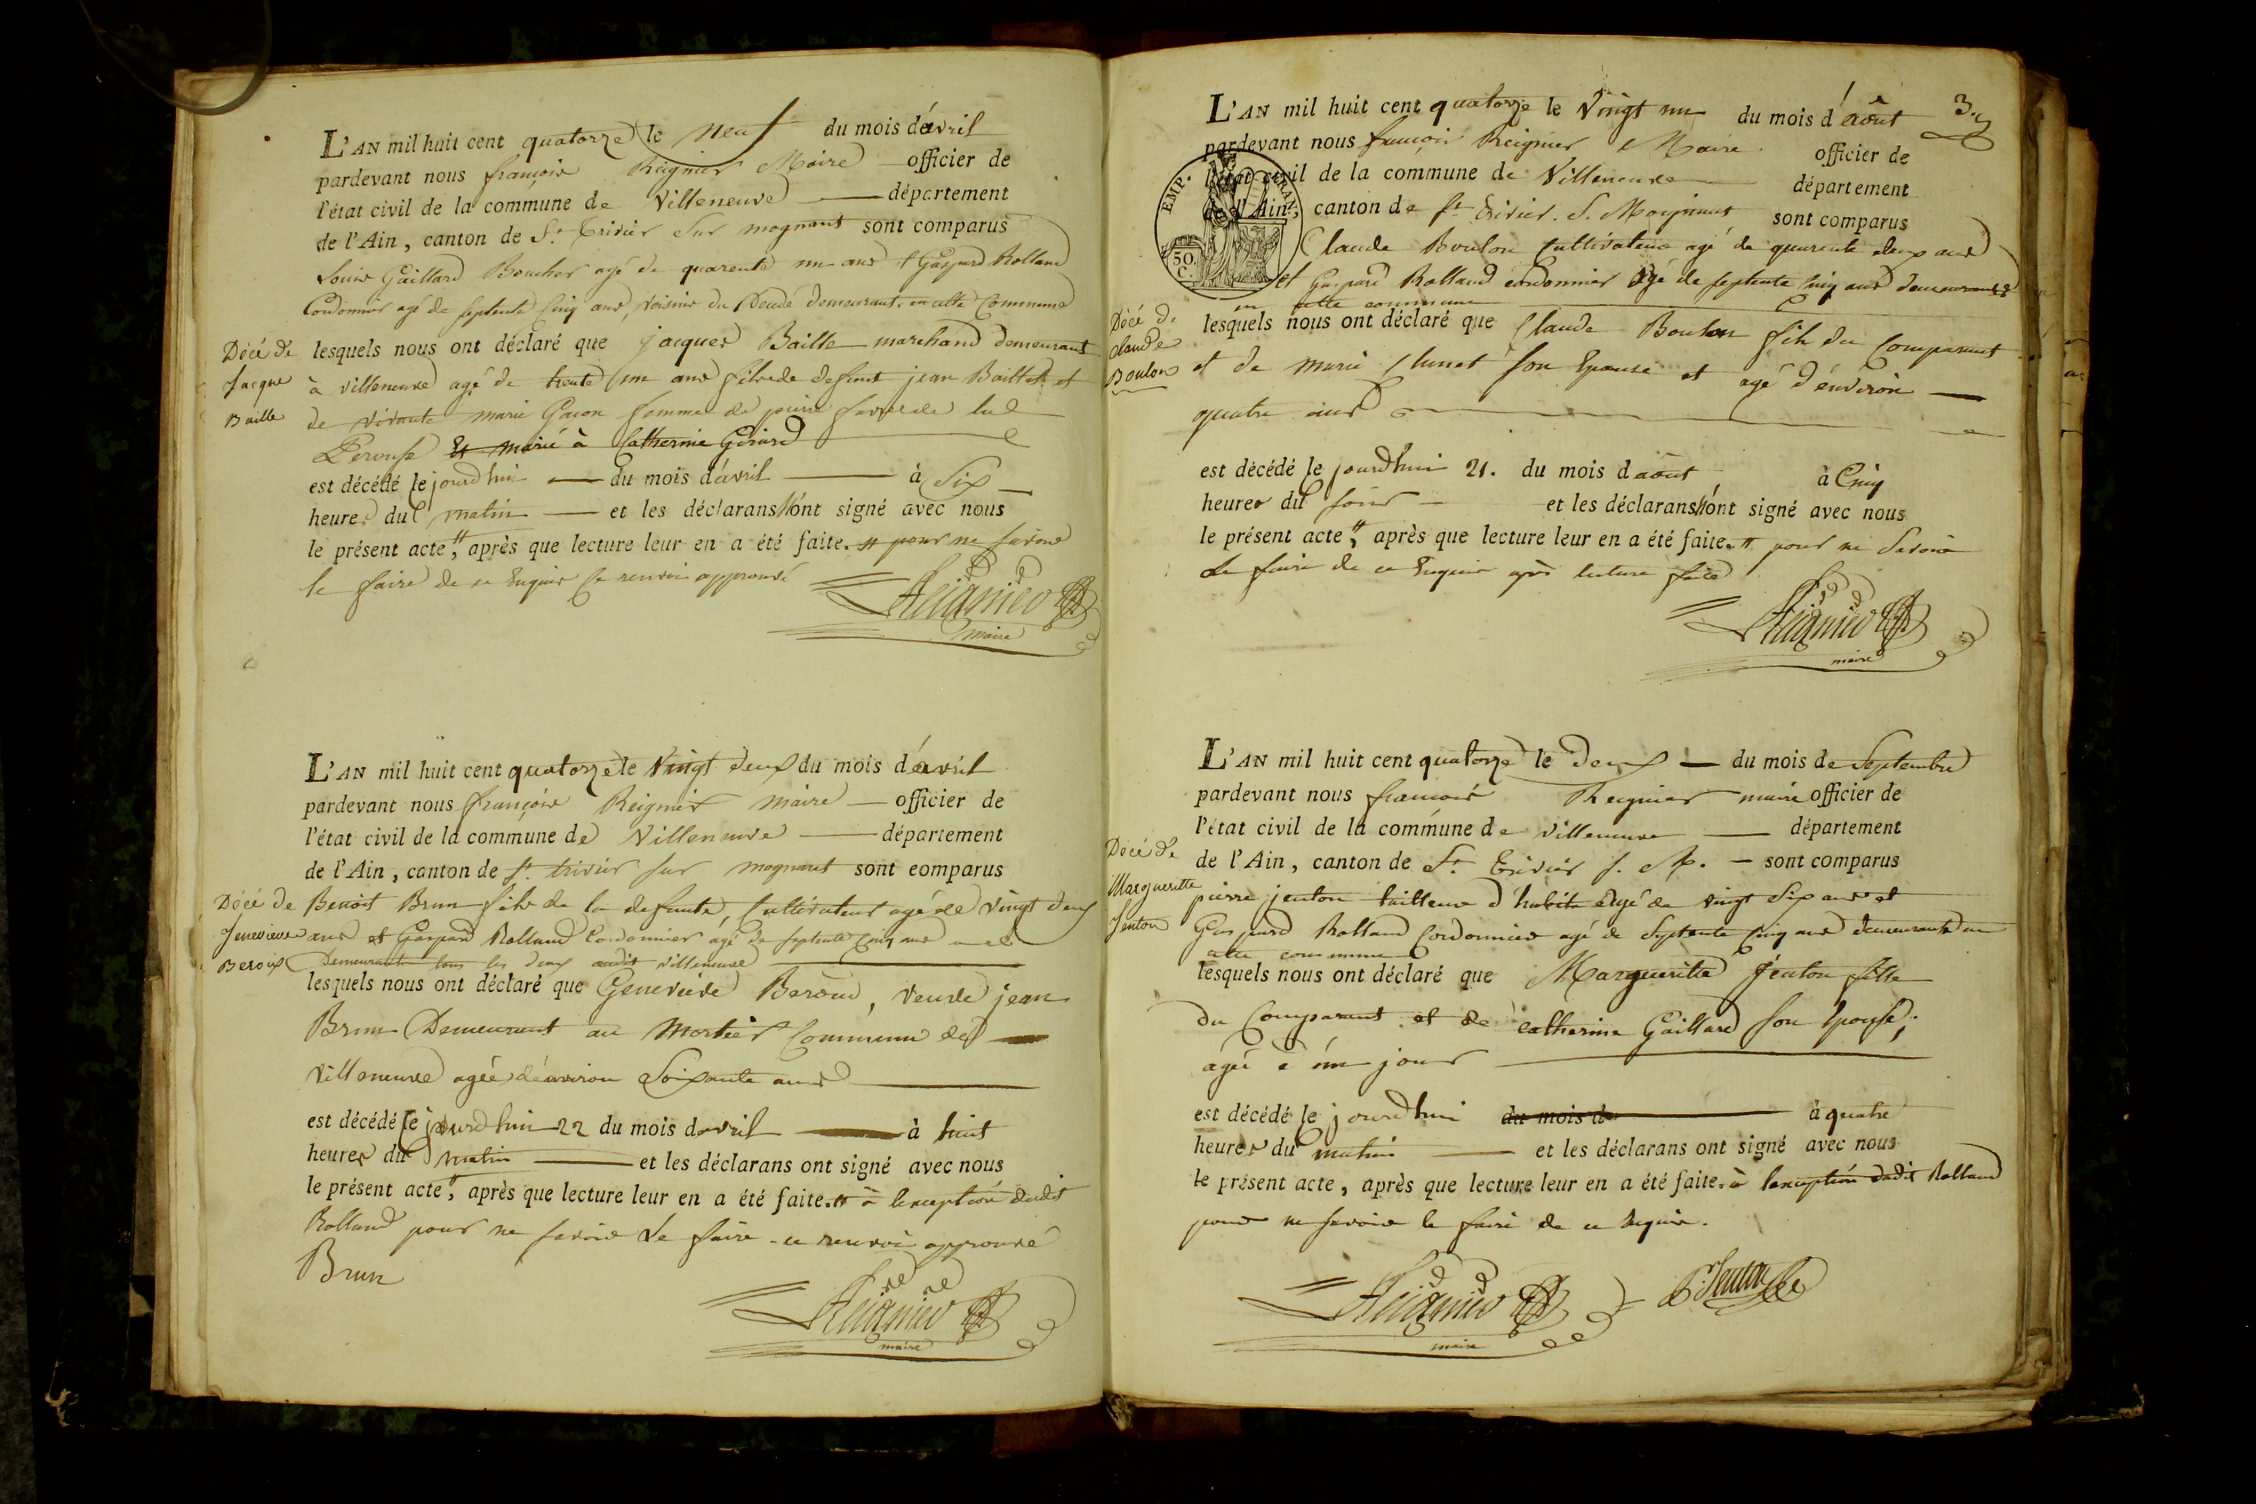 L'AN mil huit cent quatorze le neuf du mois d'avril
pardevant nous françois Reignier Maire officier de
l'état civil de la commune de Villeneuve département
de l'Ain, canton de St Trivier Sur mognant sont comparus
Louis Gaillard Boucher agé de quarente un ans et Gaspard Rolland
Cordonnier agé de septente cinq ans, voisins du Décédé demeurant en cette Commune
Décé de
Jacque
Baille
lesquels nous ont déclaré que jacques Baille marchand demeurant
à villeneuve agé de trente un ans fils de defunt jean Baillet et
de vivante marie Gacon femme de
Perouse Et marié à Catherine Girard
est décédé le jourdhui du mois d'avril à Six
heures du matin et les déclarans n'ont signé avec nous
le présent acte, après que lecture leur en a été faite. pour ne savoir
le faire de ce Enquis Ce renvoi approuvé
Reignier
maire
L'AN mil huit cent quatorze le Vingt deux du mois d'avril
pardevant nous françois Reignier maire officier de
l'état civil de la commune de Villeneuve département
de l'Ain, canton de St trivier sur mognant sont comparus
Décé de
Jenevieve
Beroux
Benoit Brun fils de la defunte, Cultivateur agé de vingt deux
ans et Gaspard Rolland Cordonnier agé de septente cinq ans
Demeurants tous les deux audit villeneuve
lesquels nous ont déclaré que Genevieve Beroud, veuve jean
Brun Demeurant au Mortier Commune de
villeneuve agée d'environ Soixante ans
est décédé le jourdhui 22 du mois davril à huit
heures du matin et les déclarans ont signé avec nous
le présent acte, après que lecture leur en a été faite. à l'exception dudit
Rolland pour ne savoir Le faire ce renvoi approuvé
Brun
Reignier
maire
3.
L'AN mil huit cent quatorze le Vingt un du mois d'août
pardevant nous françois Reignier Maire officier de
l'état civil de la commune de Villeneuve département
de l'Ain, canton de St Trivier S. Mognant sont comparus
EMP. FRAN.
50.
C.
Claude Boulon Cultivateur agé de quarente deux ans
et Gaspard Rolland cordonnier agé de septente cinq ans demeurants
en cette commune
Décé de
claude
Boulon
lesquels nous ont déclaré que Claude Boulon fils du Comparant
et de Marie Clunet Son Epouse et agé d'environ
quatre ans
est décédé le jourdhui 21. du mois d août à Cinq
heures du soir et les déclarans n'ont signé avec nous
le présent acte, après que lecture leur en a été faite. pour ne Savoir
Le faire de ce Enquis après lecture faite
Reignier
maire
L'AN mil huit cent quatorze le Deux du mois de Septembre
pardevant nous françois Reignier maire officier de
l'état civil de la commune de villeneuve département
de l'Ain, canton de St Trivier s. M. sont comparus
Décé de
Marguerite
Jenton
pierre jenton tailleur d'habits agé de vingt Six ans et
Gaspard Rolland Cordonnier agé de Septente cinq ans demeurants en
cette commune
lesquels nous ont déclaré que Marguerite Jenton fille
du Comparant et de catherine Gaillard Son Epouse,
agée d un jour
est décédé le jourdhui du mois de à quatre
heures du matin et les déclarans ont signé avec nous
le présent acte, après que lecture leur en a été faite. à l'exception dudit Rolland
pour ne savoir le faire de ce Enquis.
Reignier
maire
P. Jenton